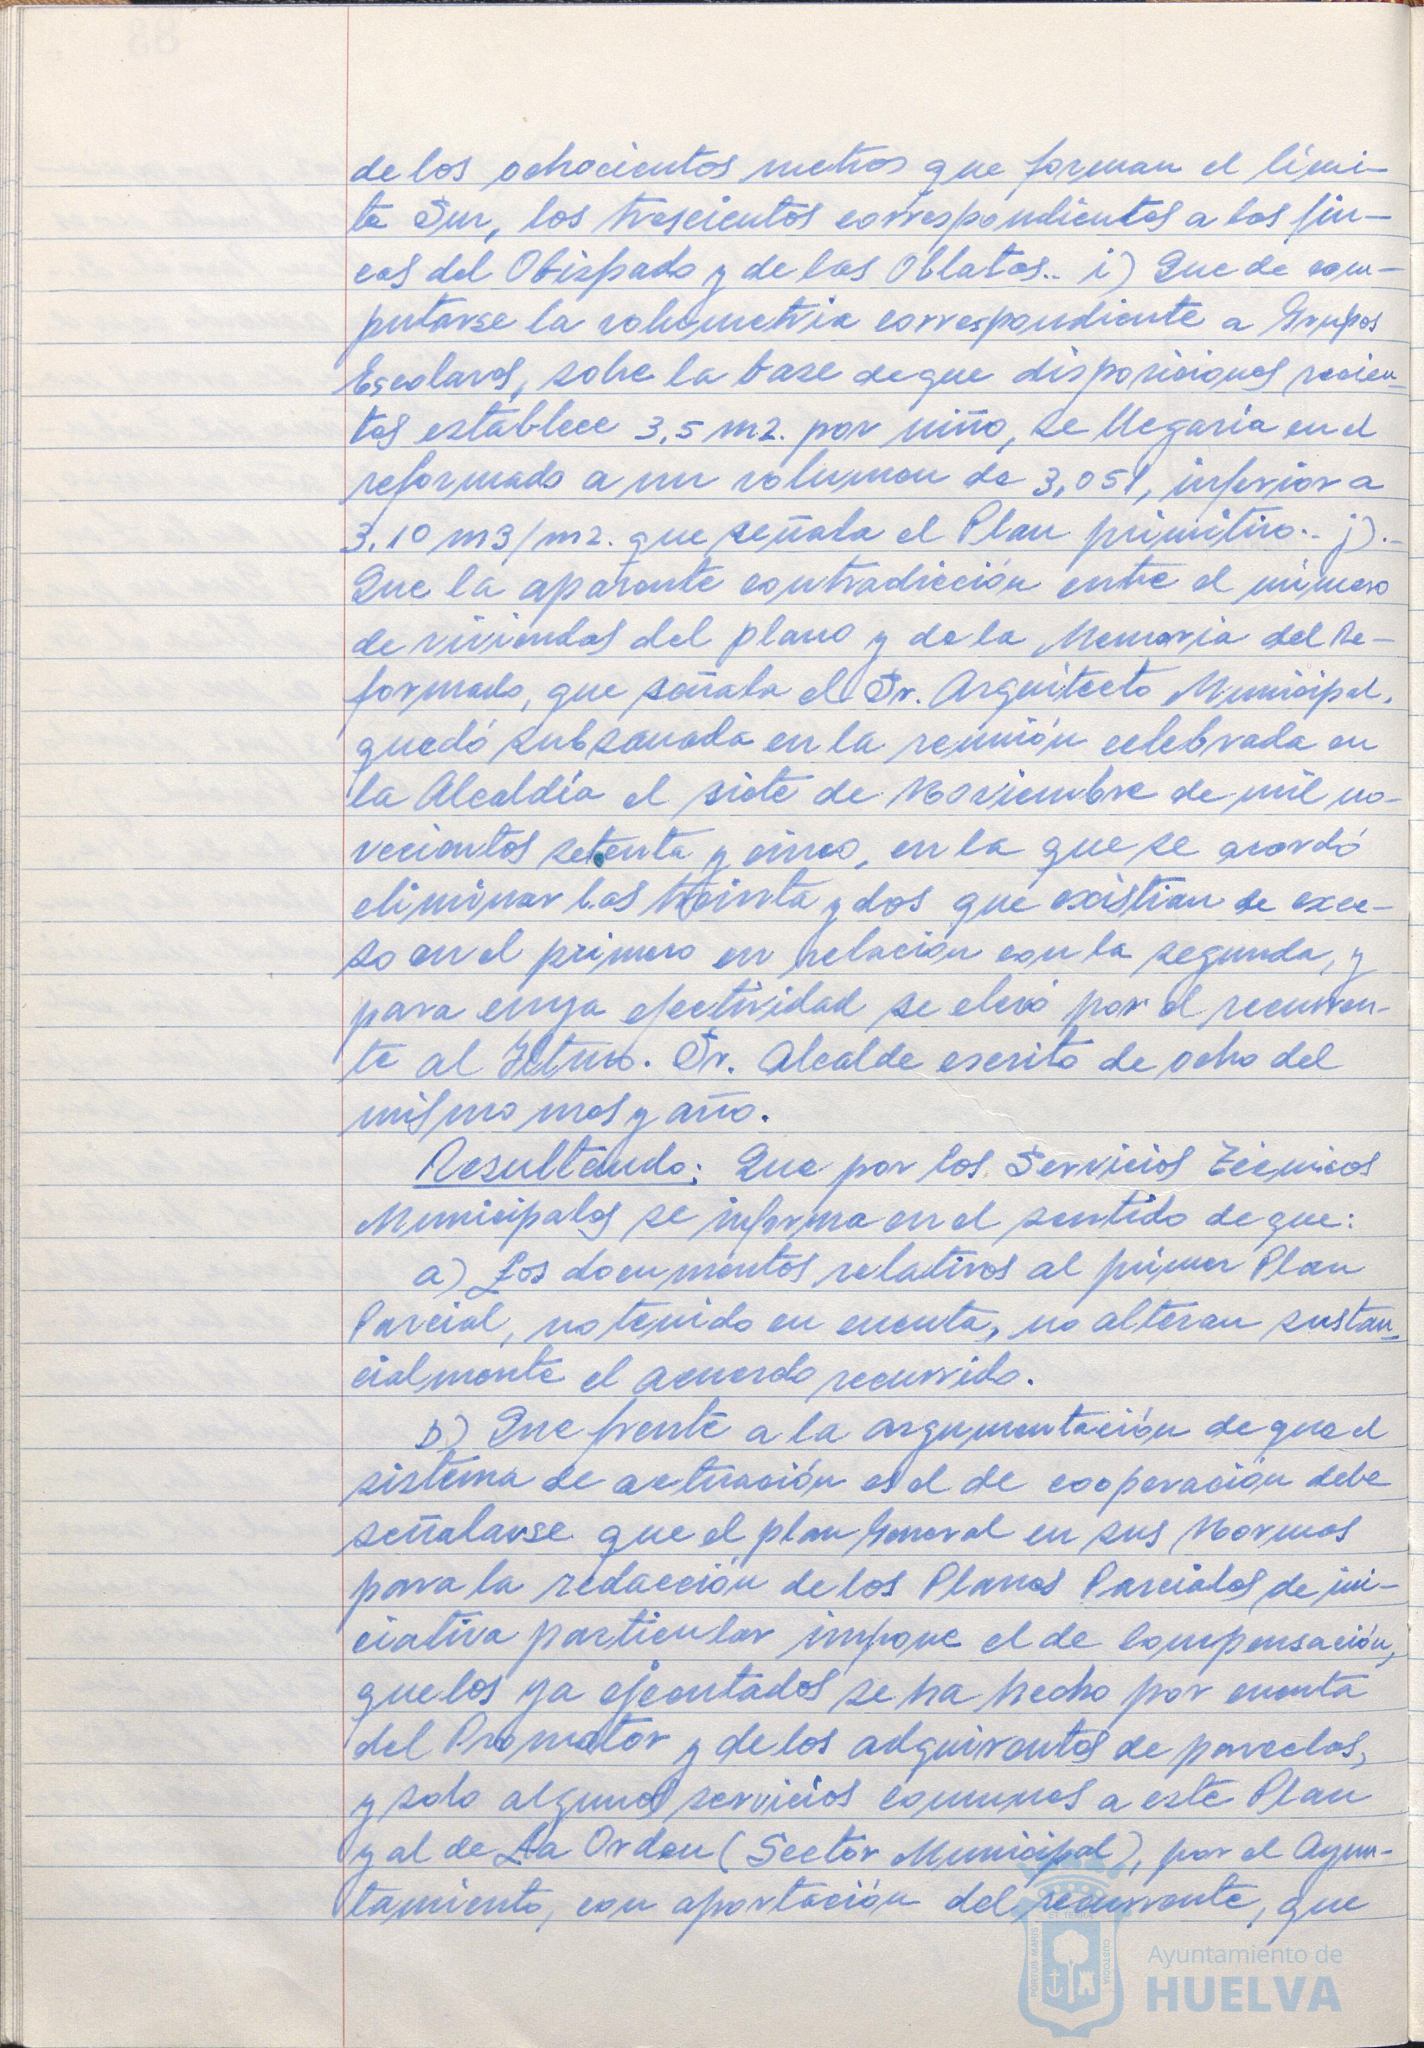 de los ochocientos metros que forman el lími-
te Sur, los trescientos correspondientes a las fin-
cas del Obispado y de las Oblatas.. i) Que de com-
putarse la volumetría correspondiente a Grupos
Escolares, sobre la base de que disposiciones recien-
tes establece 3,5 m2. por niño, se llegaría en el
reformado a un volumen de 3,051, inferior a
3,10 m3/m2. que señala el Plan primitivo.- j).-
Que la aparente contradicción entre el número
de viviendas del plano y de la Memoria del Re-
formado, que señala el Sr. Arquitecto Municipal,
quedó subsanada en la reunión celebrada en
la Alcaldía el siete de Noviembre de mil no-
vecientos setenta y cinco, en la que se acordó
eliminar las treinta y dos que existian de exce-
so en el primero en relación con la segunda, y
para cuya efectividad se elevó por el recurren-
te al Iltmo. Sr. Alcalde escrito de ocho del
mismo mes y año.
Resultando: Que por los Servicios Técnicos
Municipales se informa en el sentido de que:
a) Los documentos relativos al primer Plan
Parcial, no tenido en cuenta, no alteran sustan-
cialmente el acuerdo recurrido.
b) Que frente a la argumentación de que el
sistema de actuación es el de cooperación debe
señalarse que el plan General en sus Normas
para la redacción de los Planes Parciales de ini-
ciativa particular impone el de compensación,
que los ya ejecutados se ha hecho por cuenta
del Promotor y de los adquirentes de parcelas,
y solo algunos servicios comunes a este Plan
y al de La Orden (Sector Municipal), por el Ayun-
tamiento, con aportación del recurrente, que
PORTUS MARIS ET TERRAE CUSTODIA
Ayuntamiento de
HUELVA